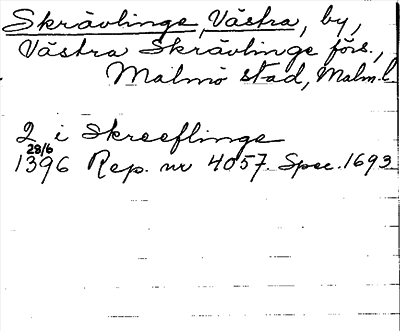 Skrävlinge, Västra, by,
Västra Skrävlinge förs.,
Malmö stad, Malm.l.
2 i Skreeflinge
28/6
1396 Rep. nr 4057. Spec. 1693